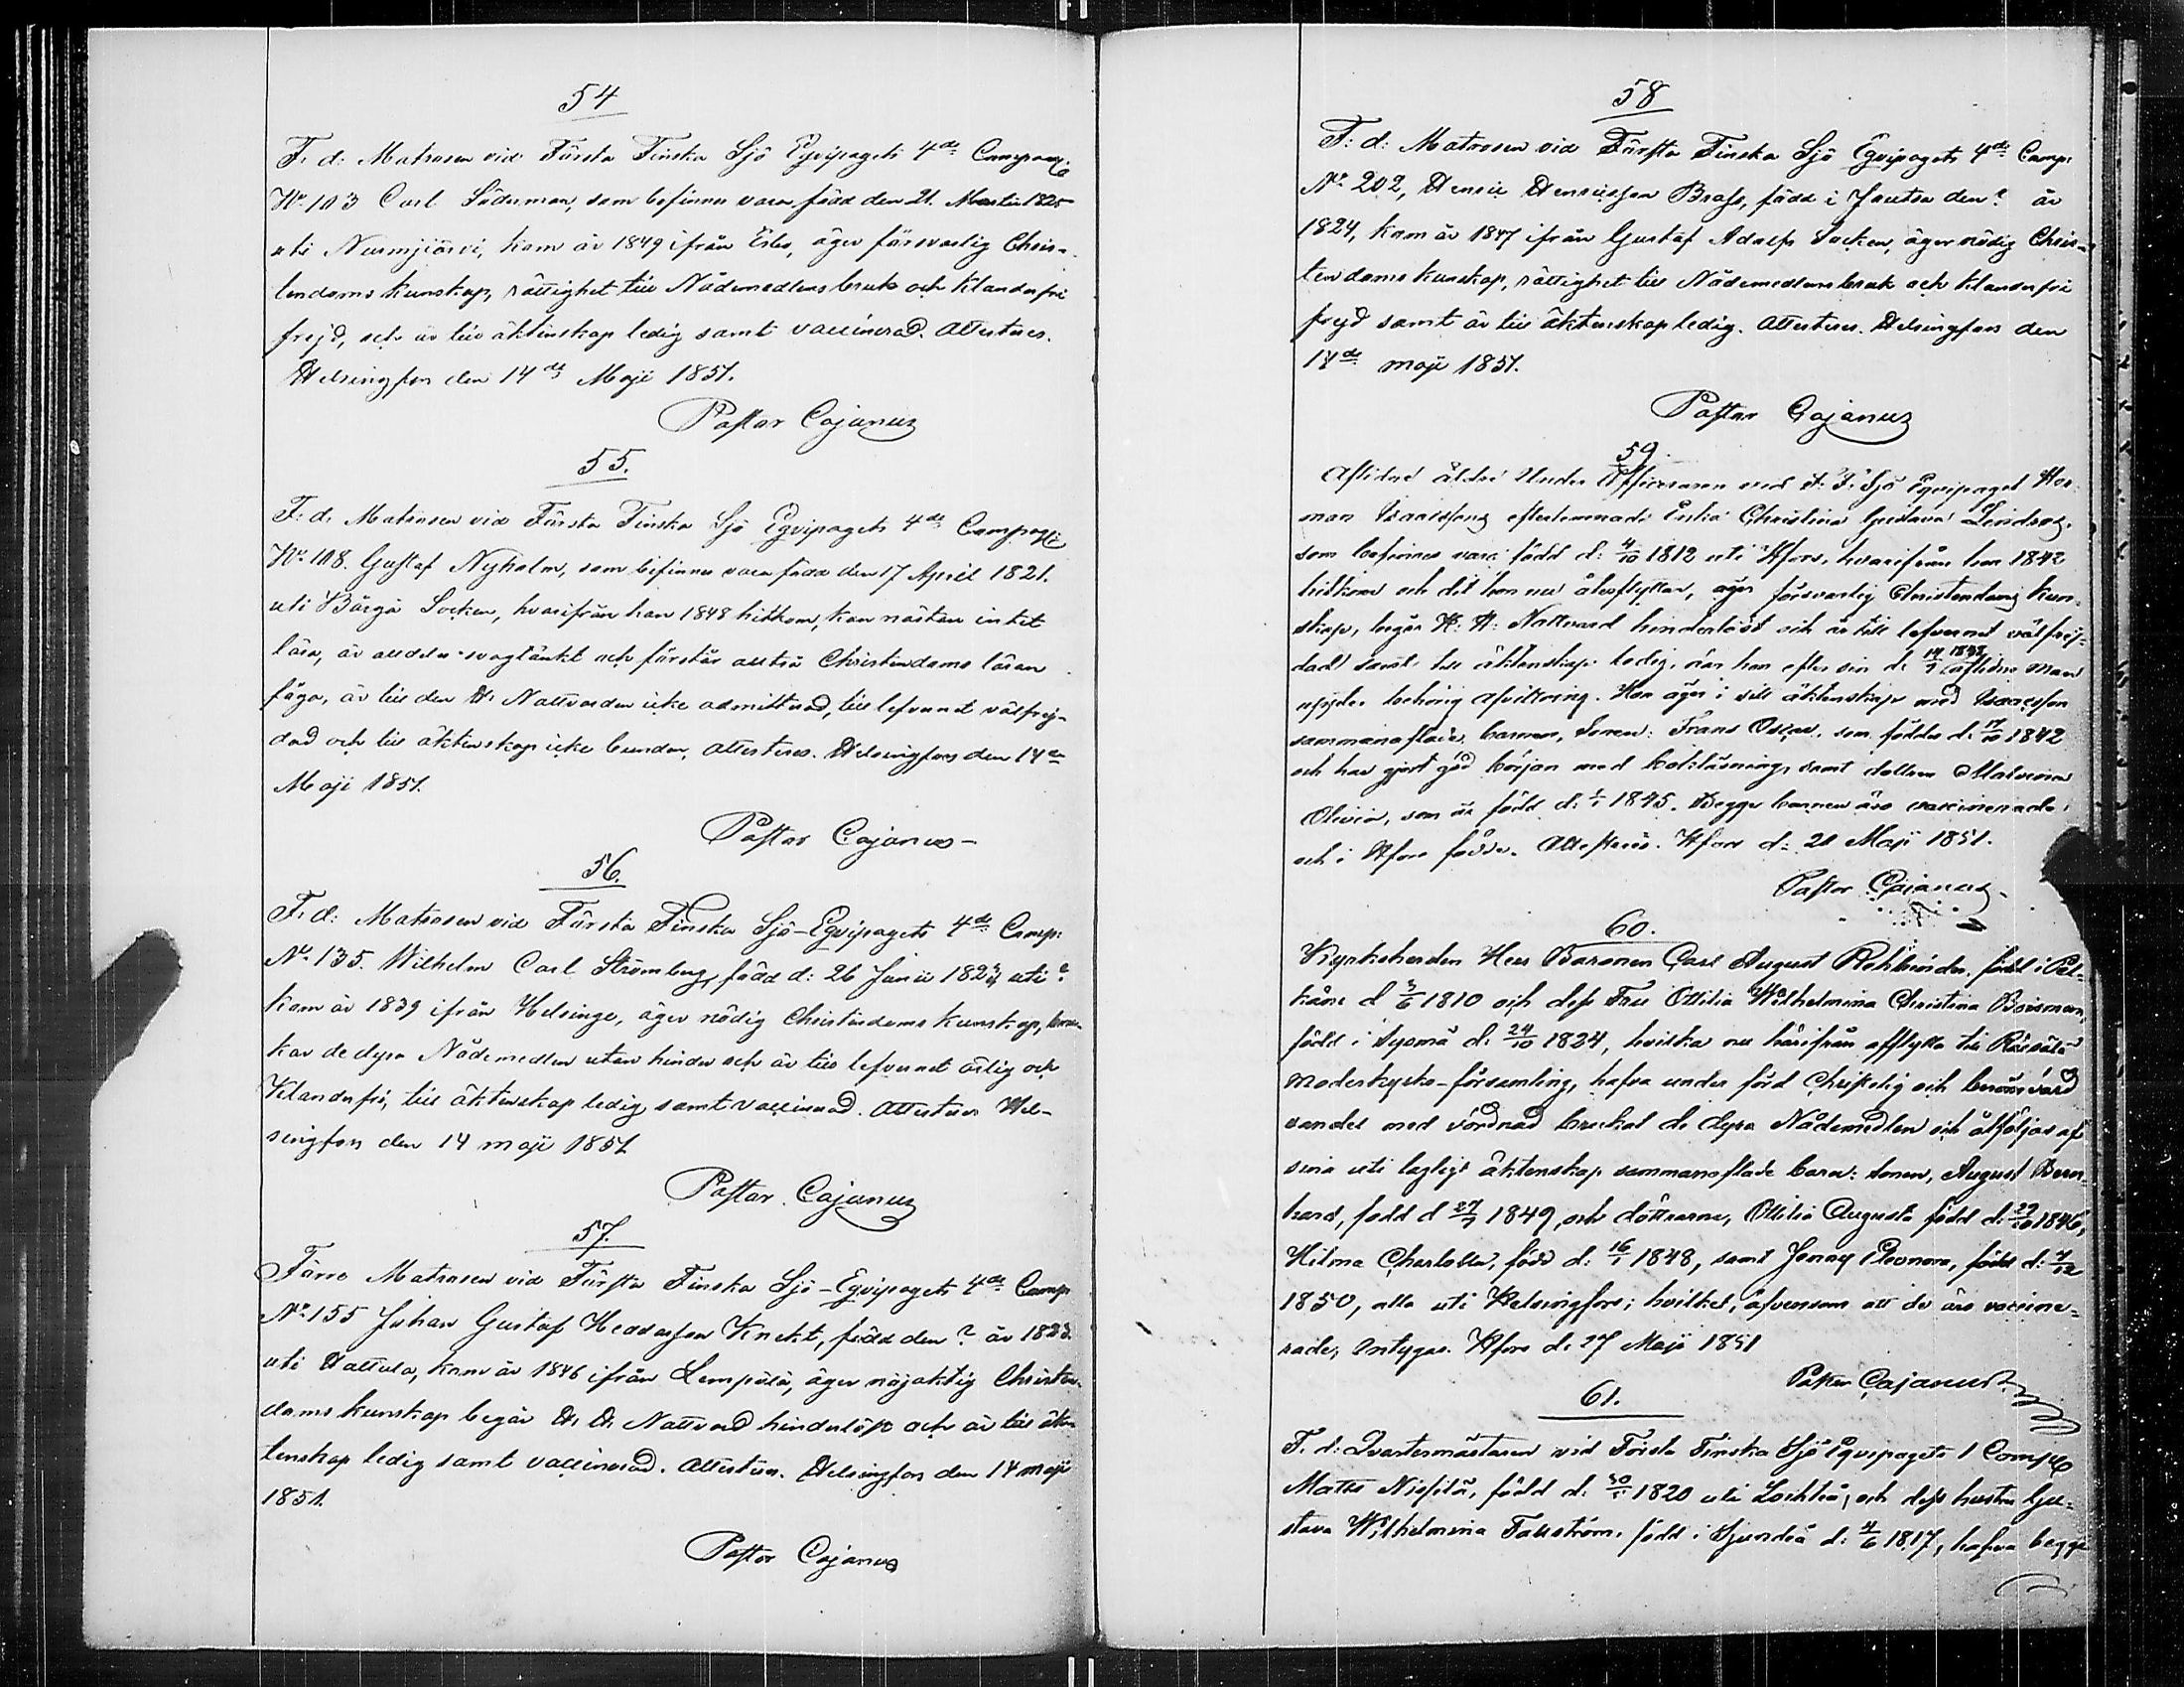 54
F. d: Matrosen vid Första Finska Sjö Eqvipagets 4de Compagn:
No 103 Carl Söderman, som befinnes vara född den 21. Martii 1825
uti Nurmijärvi, kom år 1849 ifrån Esbo, äger försvarlig Chris-
tendoms kunskap, rättighet till Nådemedlens bruk och klanderfri
frejd, och är till äktenskap ledig samt vaccinerad. Attesteres.
Helsingfors den 14de Maji 1851.
Pastor Cajanus
55.
F: d. Matrosen vid Första Finska Sjö Eqvipagets 4de Compagn:
No 108. Gustaf Nyholm, som befinnes vara född den 17 April 1821.
uti Börgå Socken, hvarifrån han 1848 hitkom, kan nästan intet
läsa, är alldeles svagtänkt och förstår utaf Christendoms läran
föga, är till den H. Nattvarden icke admitterad, till lefvernet välfrej-
dad och till äktenskap icke bunden, attesteres. Helsingfors den 14de
Maji 1851.
Pastor Cajanus
56.
F. d: Matrosen vid Första Finska Sjö-Eqvipagets 4de Comp:
No 135. Wilhelm Carl Strömberg, född d: 26 Junii uti ?
kom år 1839 ifrån Helsinge, äger nödig Christendoms kunskap, bru-
kar de dyra Nådemedlen utan hinder och är till lefvernet ärlig och
Klanderfri, till äktenskap ledig samt vaccinerad. Attesteres Hel-
singfors den 14 maji 1851
Pastor Cajanus
57.
Förre Matrosen vid Första Finska Sjö-Eqvipagets 4de Comp
No 155 Johan Gustaf Knekt, född den ? år 1823.
uti Hattula, kom år 1846 ifrån Lempälä, äger nöjaktig Christen-
doms kunskap begår H. H. Nattvard hinderlöst och är till äk-
tenskap ledig samt vaccinerad. Attesteres. Helsingfors den 14 maji
1851.
Pastor Cajanus
58
F: d: Matrosen vid Första Finska Sjö Eqvipagets 4de Comp:
No 202, Henric Henricsson Brass, född i Joutsa den ? år
1824, kom år 1847 ifrån Gustaf Adolfs Socken, äger nödig Chris-
tendoms kunskap, rättighet till Nådemedlens bruk och klanderfri
frejd samt är till äktenskap ledig. Attesteres. Helsingfors den
14de maji 1851.
Pastor Cajanus
59.
Aflidne äldre Under Officeraren vid F. F. Sjö Eqvipaget Her-
man Isaacssons efterlemnade Enka Christina Gustava
som befinnes vara född d: 4/10 1812 uti Hfors, hvarifrån hon 1842
hitkom och dit hon nu återflyttar, äger försvarlig Christendoms kun-
skap, begår H: H: Nattvard hinderlöst och är till lefvernet välfrej-
dad samt till äktenskap ledig, när hon efter sin d. 14/7 1848 aflidne man
uppgder behörig afvittring. Hon äger i sitt äktenskap med Isaacsson
sammanaflade barnen, Sonen: Frans Oscar, som föddes d. 17/10 1842
och har gjort god början med bokläsning, samt dottren Malvina
Olivia, som är född d: 1/1 1845. Begge barnen äro vaccinerade
och i Hfors födde. Attesteres. Hfors d: 21 Maji 1851.
Pastor Cajanus
60.
Kyrkoherden Herr Baronen Carl August Rehbinder, född i Pel-
käne d 3/6 1810 och dess Fru Ottilia Wilhelmina Christina Boisman,
född i Sysmä d. 24/10 1824, hvilka nu härifrån afflytta till Räisälä
moderkyrko-församling, hafva under förd Christelig och berömvärd
vandel med vördnad brukat de dyra Nådemedlen och åtföljas af
sina uti lagligt äktenskap sammanaflade barn: sonen, August Bern-
hard, född d 27/7 1849, och döttrarne, Ottilia Augusta född d. 29/10 1846,
Hilma Charlotta, född d: 16/1 1848, samt Jenny Eleonora, född d: 7/12
1850, alla uti Helsingfors; hvilket, äfvensom att de äro vaccine-
rade, intygas. Hfors d. 27 Maji 1851
Pastor Cajanus
61.
F. d. Qvartermästaren vid Första Finska Sjö Eqvipagets 1 Comp:
Matts född d. 30/1 1820 uti Lochteå, och dess hustru Gu-
stava Wilhelmina Fallström, född i Sjundeå d: 4/6 1817, hafva begge